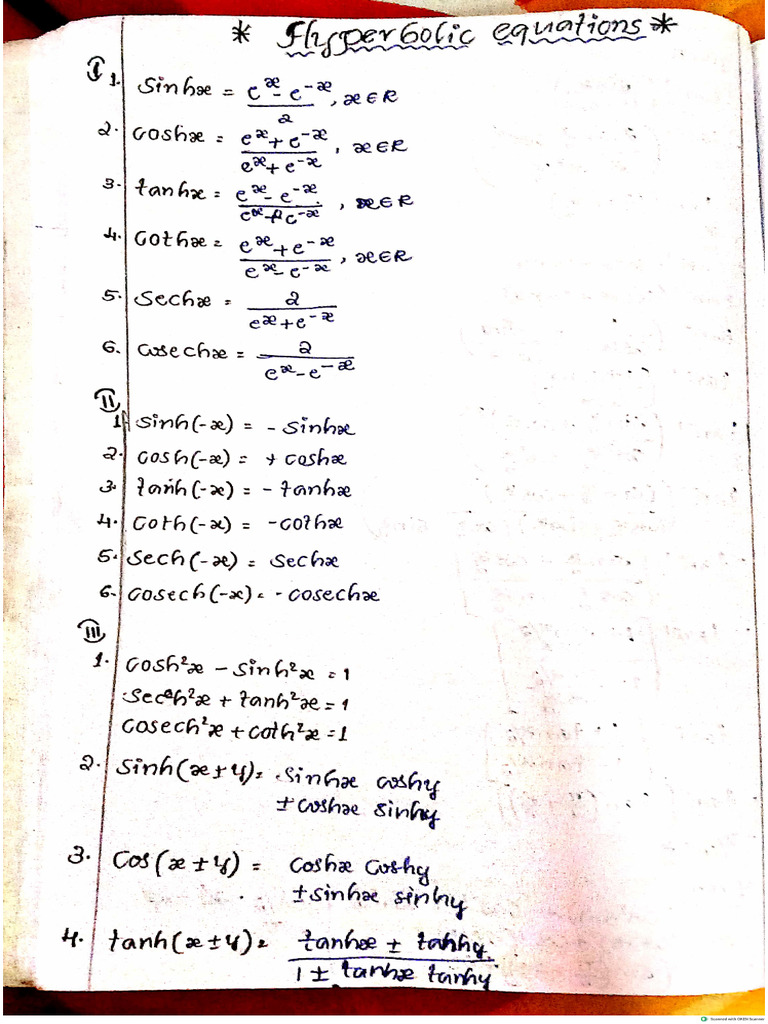 * Hyperbolic equations *
I
1. Sinhx = e^x - e^-x / 2 , x∈R
2. Coshx = e^x + e^-x / e^x + e^-x , x∈R
3. tanhx = e^x - e^-x / e^x + e^-x , x∈R
4. Cothx = e^x + e^-x / e^x - e^-x , x∈R
5. Sechx = 2 / e^x + e^-x
6. Cosechx = 2 / e^x - e^-x
II
1. sinh(-x) = - sinhx
2. cosh(-x) = + coshx
3. tanh(-x) = - tanhx
4. Coth(-x) = -cothx
5. Sech(-x) = Sechx
6. Cosech(-x) = - cosechx
III
1. Cosh²x - sinh²x = 1
Sech²x + tanh²x = 1
Cosech²x + coth²x = 1
2. Sinh(x±y) = Sinhx coshy
± coshx sinhy
3. Cos(x ± y) = Coshx Coshy
± sinhx sinhy
4. tanh(x±y) = tanhx ± tanhy / 1 ± tanhx tanhy
Scanned with OKEN Scanner